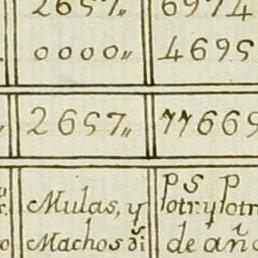 2657„ 6974
0000„ 4695
2657„ 77669
Mulas, y Potr.ˢ y Potr
Machos dı̃ de añ